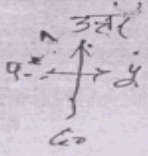 उत्तर
प
पू
द